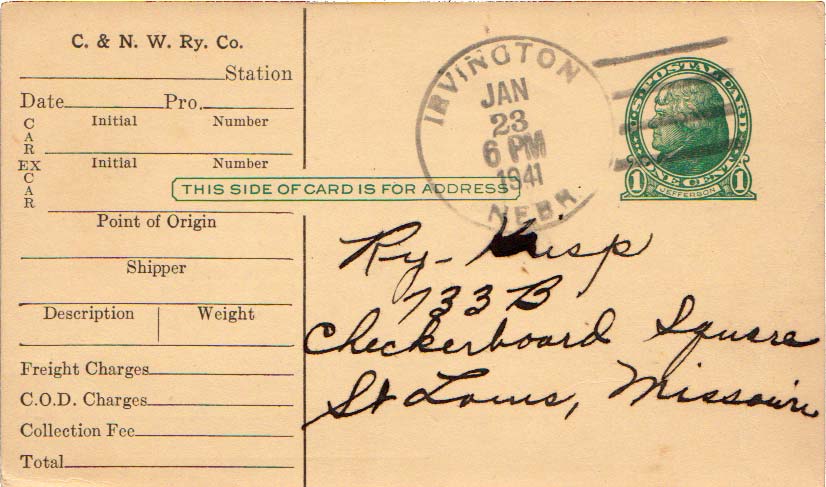 C. & N. W. Ry. Co.
Station
Date Pro.
CAR Initial Number
EX CAR Initial Number
Point of Origin
Shipper
Description Weight
Freight Charges
C.O.D. Charges
Collection Fee
Total
THIS SIDE OF CARD IS FOR ADDRESS
IRVINGTON
JAN
23
6 PM
1941
NEBR
U.S. POSTAL CARD
ONE CENT
1 JEFFERSON 1
Ry-Krisp
733 B
Checkerboard Square
St Louis, Missouri